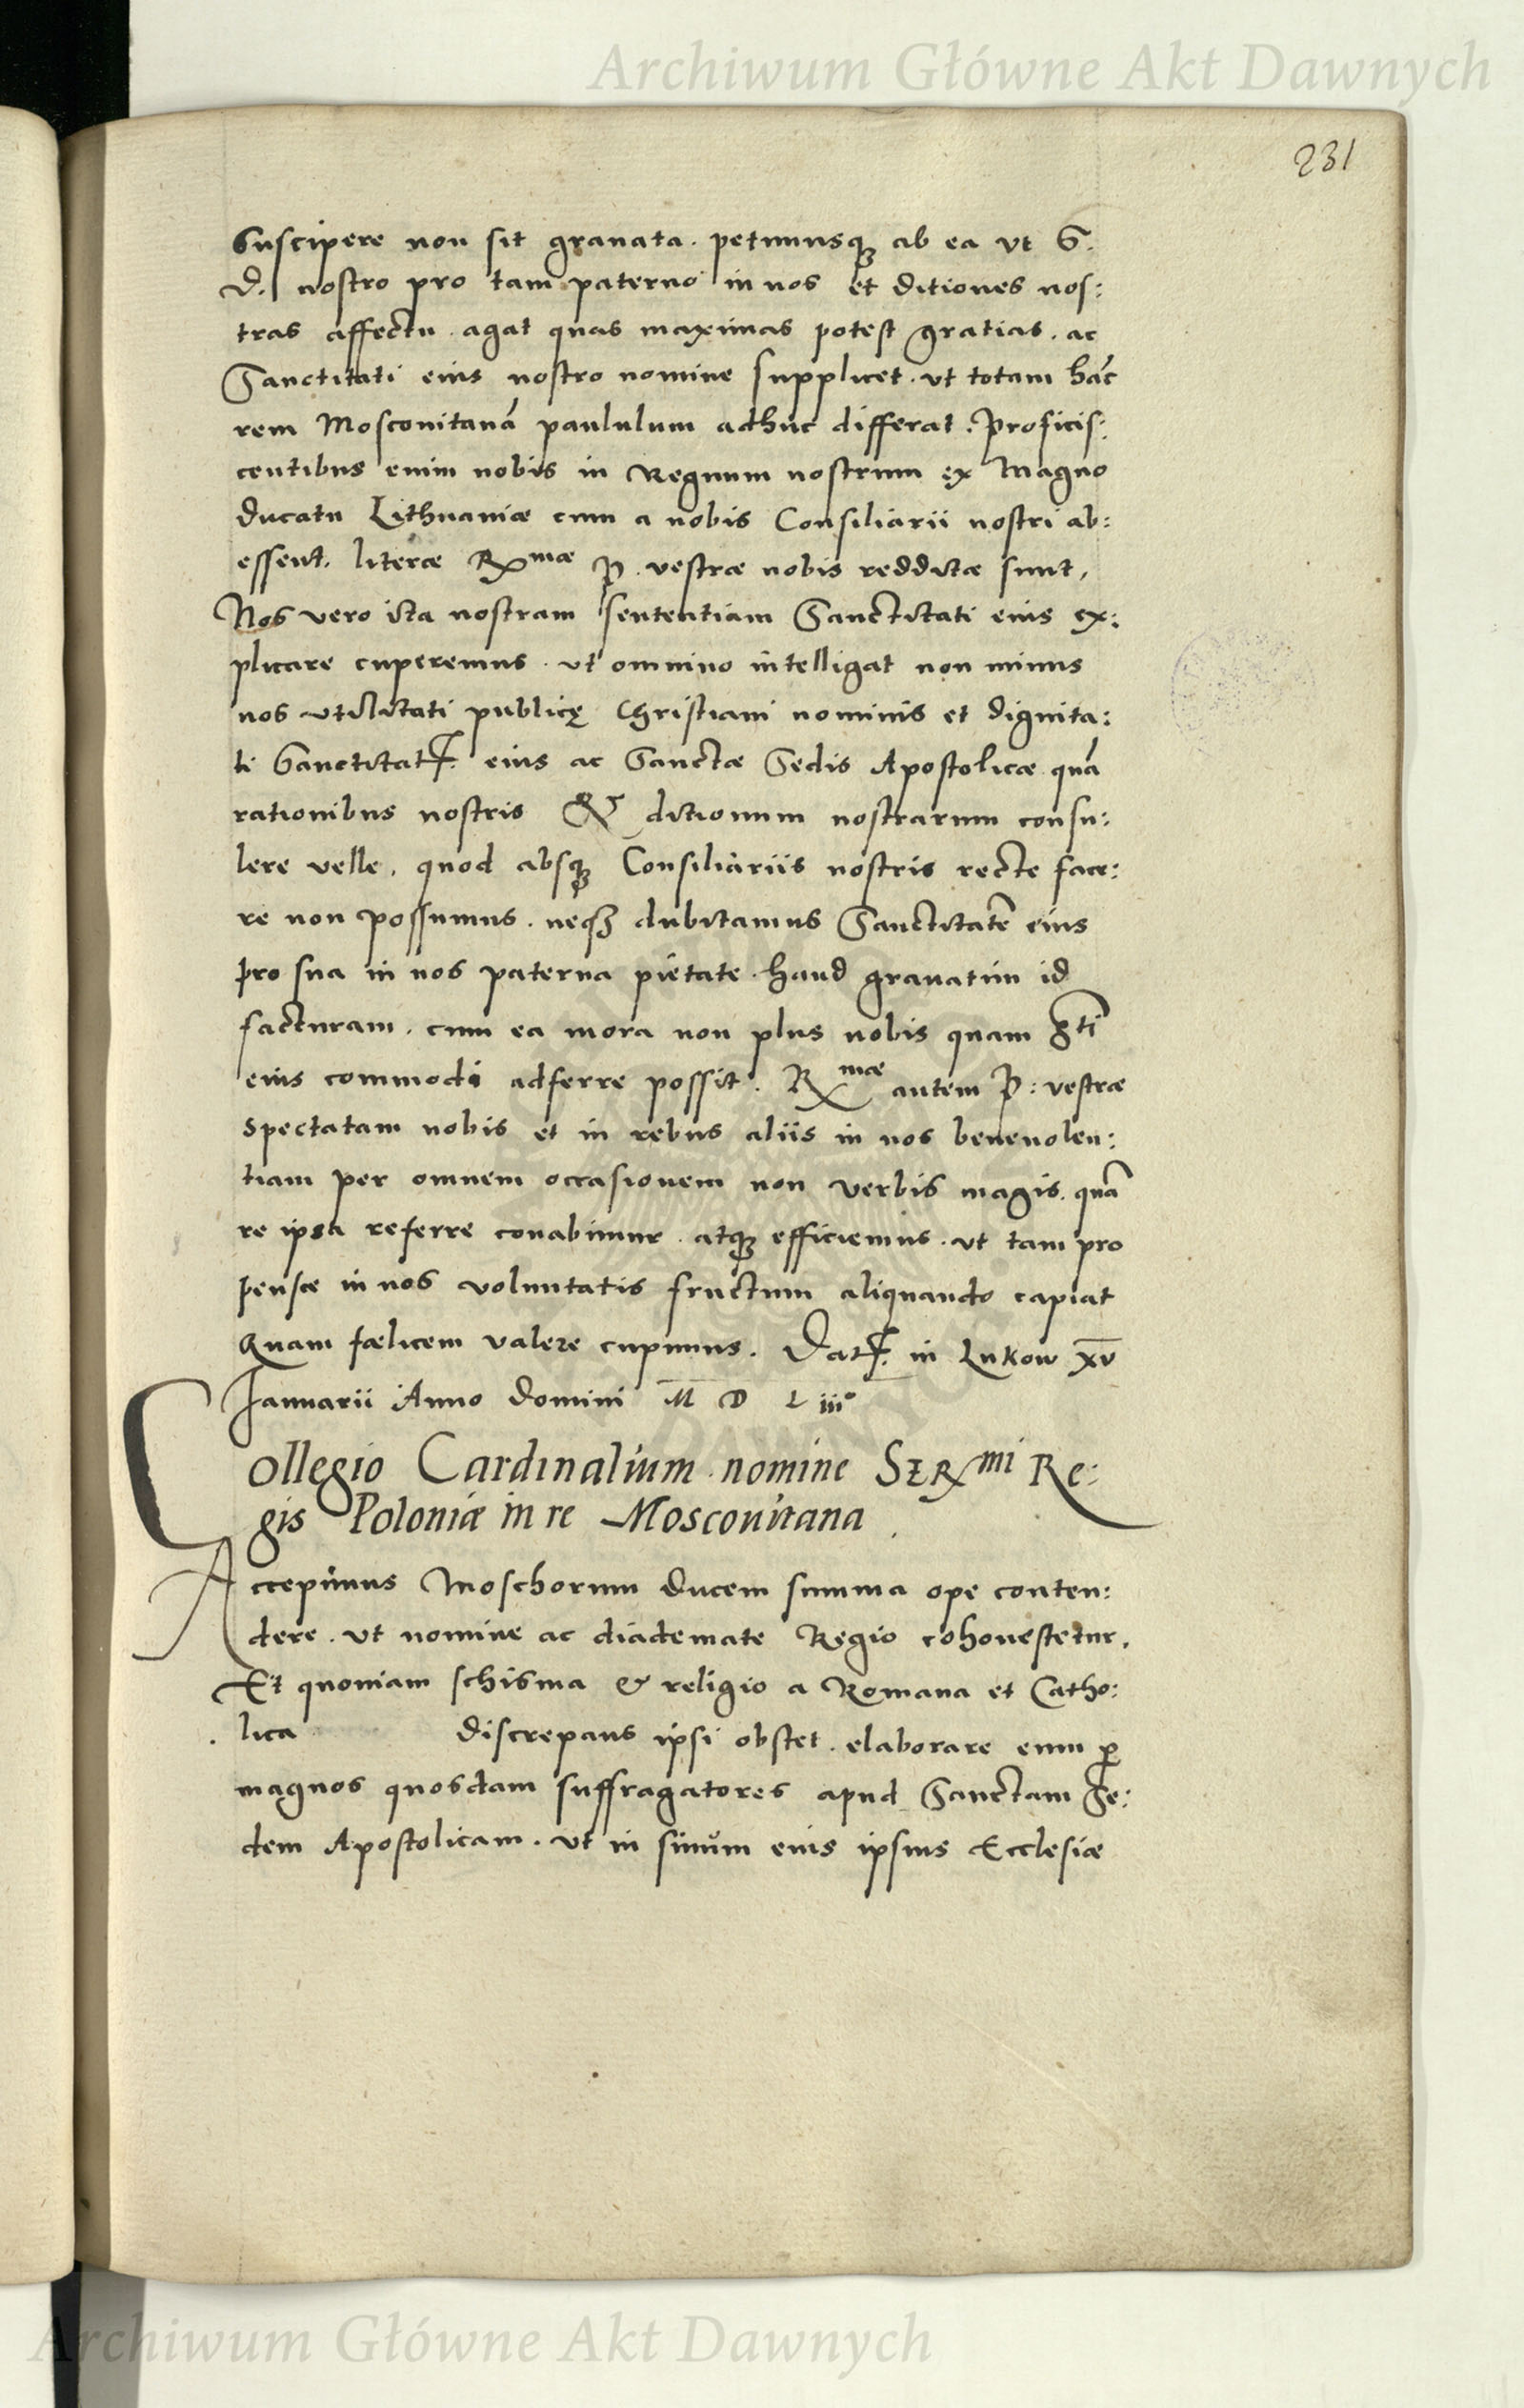 Archiwum Główne Akt Dawnych
231
Suscipere non sit gravata. petimusq3 ab ea ut S.
D. nostro pro tam paterno in nos et ditiones nos:
tras affectu. agat quas maximas potest gratias. ac
Sanctitati eius nostro nomine supplicet. ut totam hãc
rem Mosconitanã paululum adhuc differat. Proficis:
centibus enim nobis in Regnum nostrum ex Magno
ducatu Lithuaniæ cum a nobis Consiliarii nostri ab:
essent. literæ Rmæ P. vestræ nobis redditæ sunt,
Nos vero ita nostram sententiam Sanctitati eius ex:
plicare cuperemus. ut omnino intelligat non minus
nos utilitati publicę Christiani nominis et dignita:
ti Sanctitat. eius ac Sanctæ Sedis Apostolicæ quã
rationibus nostris & ditionum nostrarum consu:
lere velle. quod absq3 Consiliariis nostris recte face:
re non possumus. neq3 dubitamus Sanctitatẽ eius
pro sua in nos paterna pietate. haud gravatim id
facturam. cum ea mora non plus nobis quam Sti
eius commodi adferre possit. Rmæ autem P: vestræ
Spectatam nobis et in rebus aliis in nos benevolen:
tiam per omnem occasionem non verbis magis. quã
re ipsa referre conabimur. atq3 efficiemus. ut tam pro
pensæ in nos voluntatis fructum aliquando capiat
Quam fælicem valere cupimus. Dat. in Lukow xv
Januarii Anno Domini M D L iiiº
Collegio Cardinalium nomine SERmi Re:
gis Poloniæ in re Moscovitana.
Accepimus Moschorum Ducem summa ope conten:
dere. ut nomine ac diademate Regio cohonestetur.
Et quoniam schisma & religio a Romana et Catho:
lica discrepans ipsi obstet. elaborare eum ꝑ
magnos quosdam suffragatores apud Sanctam Se:
dem Apostolicam. ut in sinŭm eius ipsius Ecclesiæ
Archiwum Główne Akt Dawnych